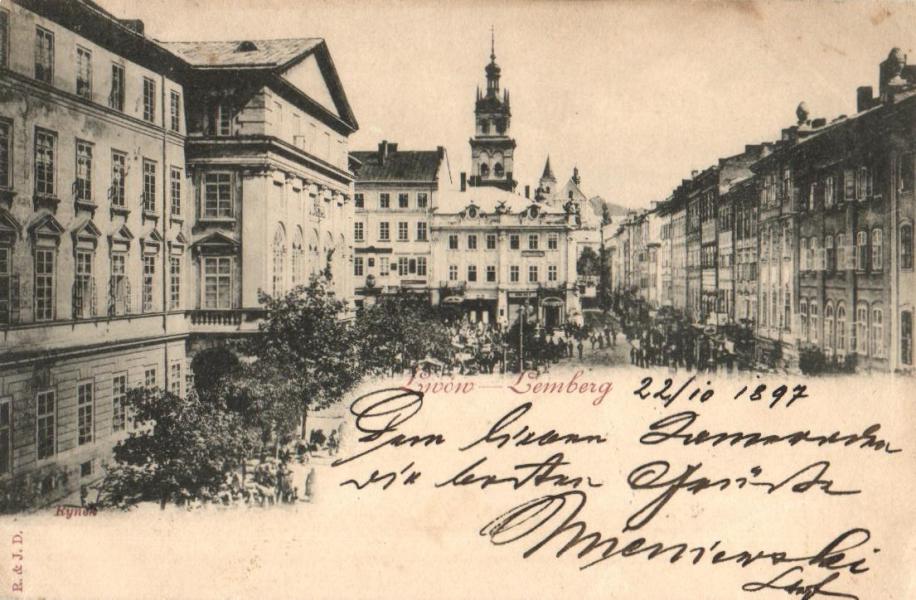 Lwów — Lemberg
22/10 1897
Dem lieben
die besten Grüße
Mieniewski
Rynek
R. & J. D.